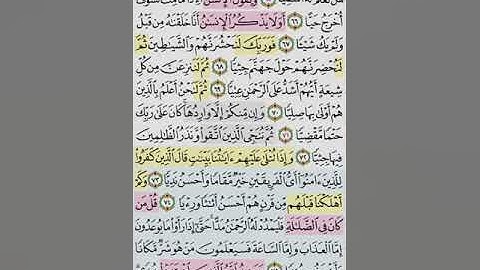 أُخْرَجُ حَيًّا ٦٦ أَوَلَا يَذْكُرُ الْإِنْسَٰنُ أَنَّا خَلَقْنَٰهُ مِن قَبْلُ
وَلَمْ يَكُ شَيْئًا ٦٧ فَوَرَبِّكَ لَنَحْشُرَنَّهُمْ وَالشَّيَٰطِينَ ثُمَّ
لَنُحْضِرَنَّهُمْ حَوْلَ جَهَنَّمَ جِثِيًّا ٦٨ ثُمَّ لَنَنزِعَنَّ مِن كُلِّ
شِيعَةٍ أَيُّهُمْ أَشَدُّ عَلَى الرَّحْمَٰنِ عِتِيًّا ٦٩ ثُمَّ لَنَحْنُ أَعْلَمُ بِالَّذِينَ
هُمْ أَوْلَىٰ بِهَا صِلِيًّا ٧٠ وَإِن مِّنكُمْ إِلَّا وَارِدُهَا كَانَ عَلَىٰ رَبِّكَ
حَتْمًا مَّقْضِيًّا ٧١ ثُمَّ نُنَجِّي الَّذِينَ اتَّقَوا وَّنَذَرُ الظَّٰلِمِينَ
فِيهَا جِثِيًّا ٧٢ وَإِذَا تُتْلَىٰ عَلَيْهِمْ ءَايَٰتُنَا بَيِّنَٰتٍ قَالَ الَّذِينَ كَفَرُوا
لِلَّذِينَ ءَامَنُوا أَيُّ الْفَرِيقَيْنِ خَيْرٌ مَّقَامًا وَأَحْسَنُ نَدِيًّا ٧٣ وَكَمْ
أَهْلَكْنَا قَبْلَهُم مِّن قَرْنٍ هُمْ أَحْسَنُ أَثَٰثًا وَرِءْيًا ٧٤ قُلْ مَن
كَانَ فِي الضَّلَٰلَةِ فَلْيَمْدُدْ لَهُ الرَّحْمَٰنُ مَدًّا حَتَّىٰ إِذَا رَأَوْا مَا يُوعَدُونَ
إِمَّا الْعَذَابَ وَإِمَّا السَّاعَةَ فَسَيَعْلَمُونَ مَنْ هُوَ شَرٌّ مَّكَانًا